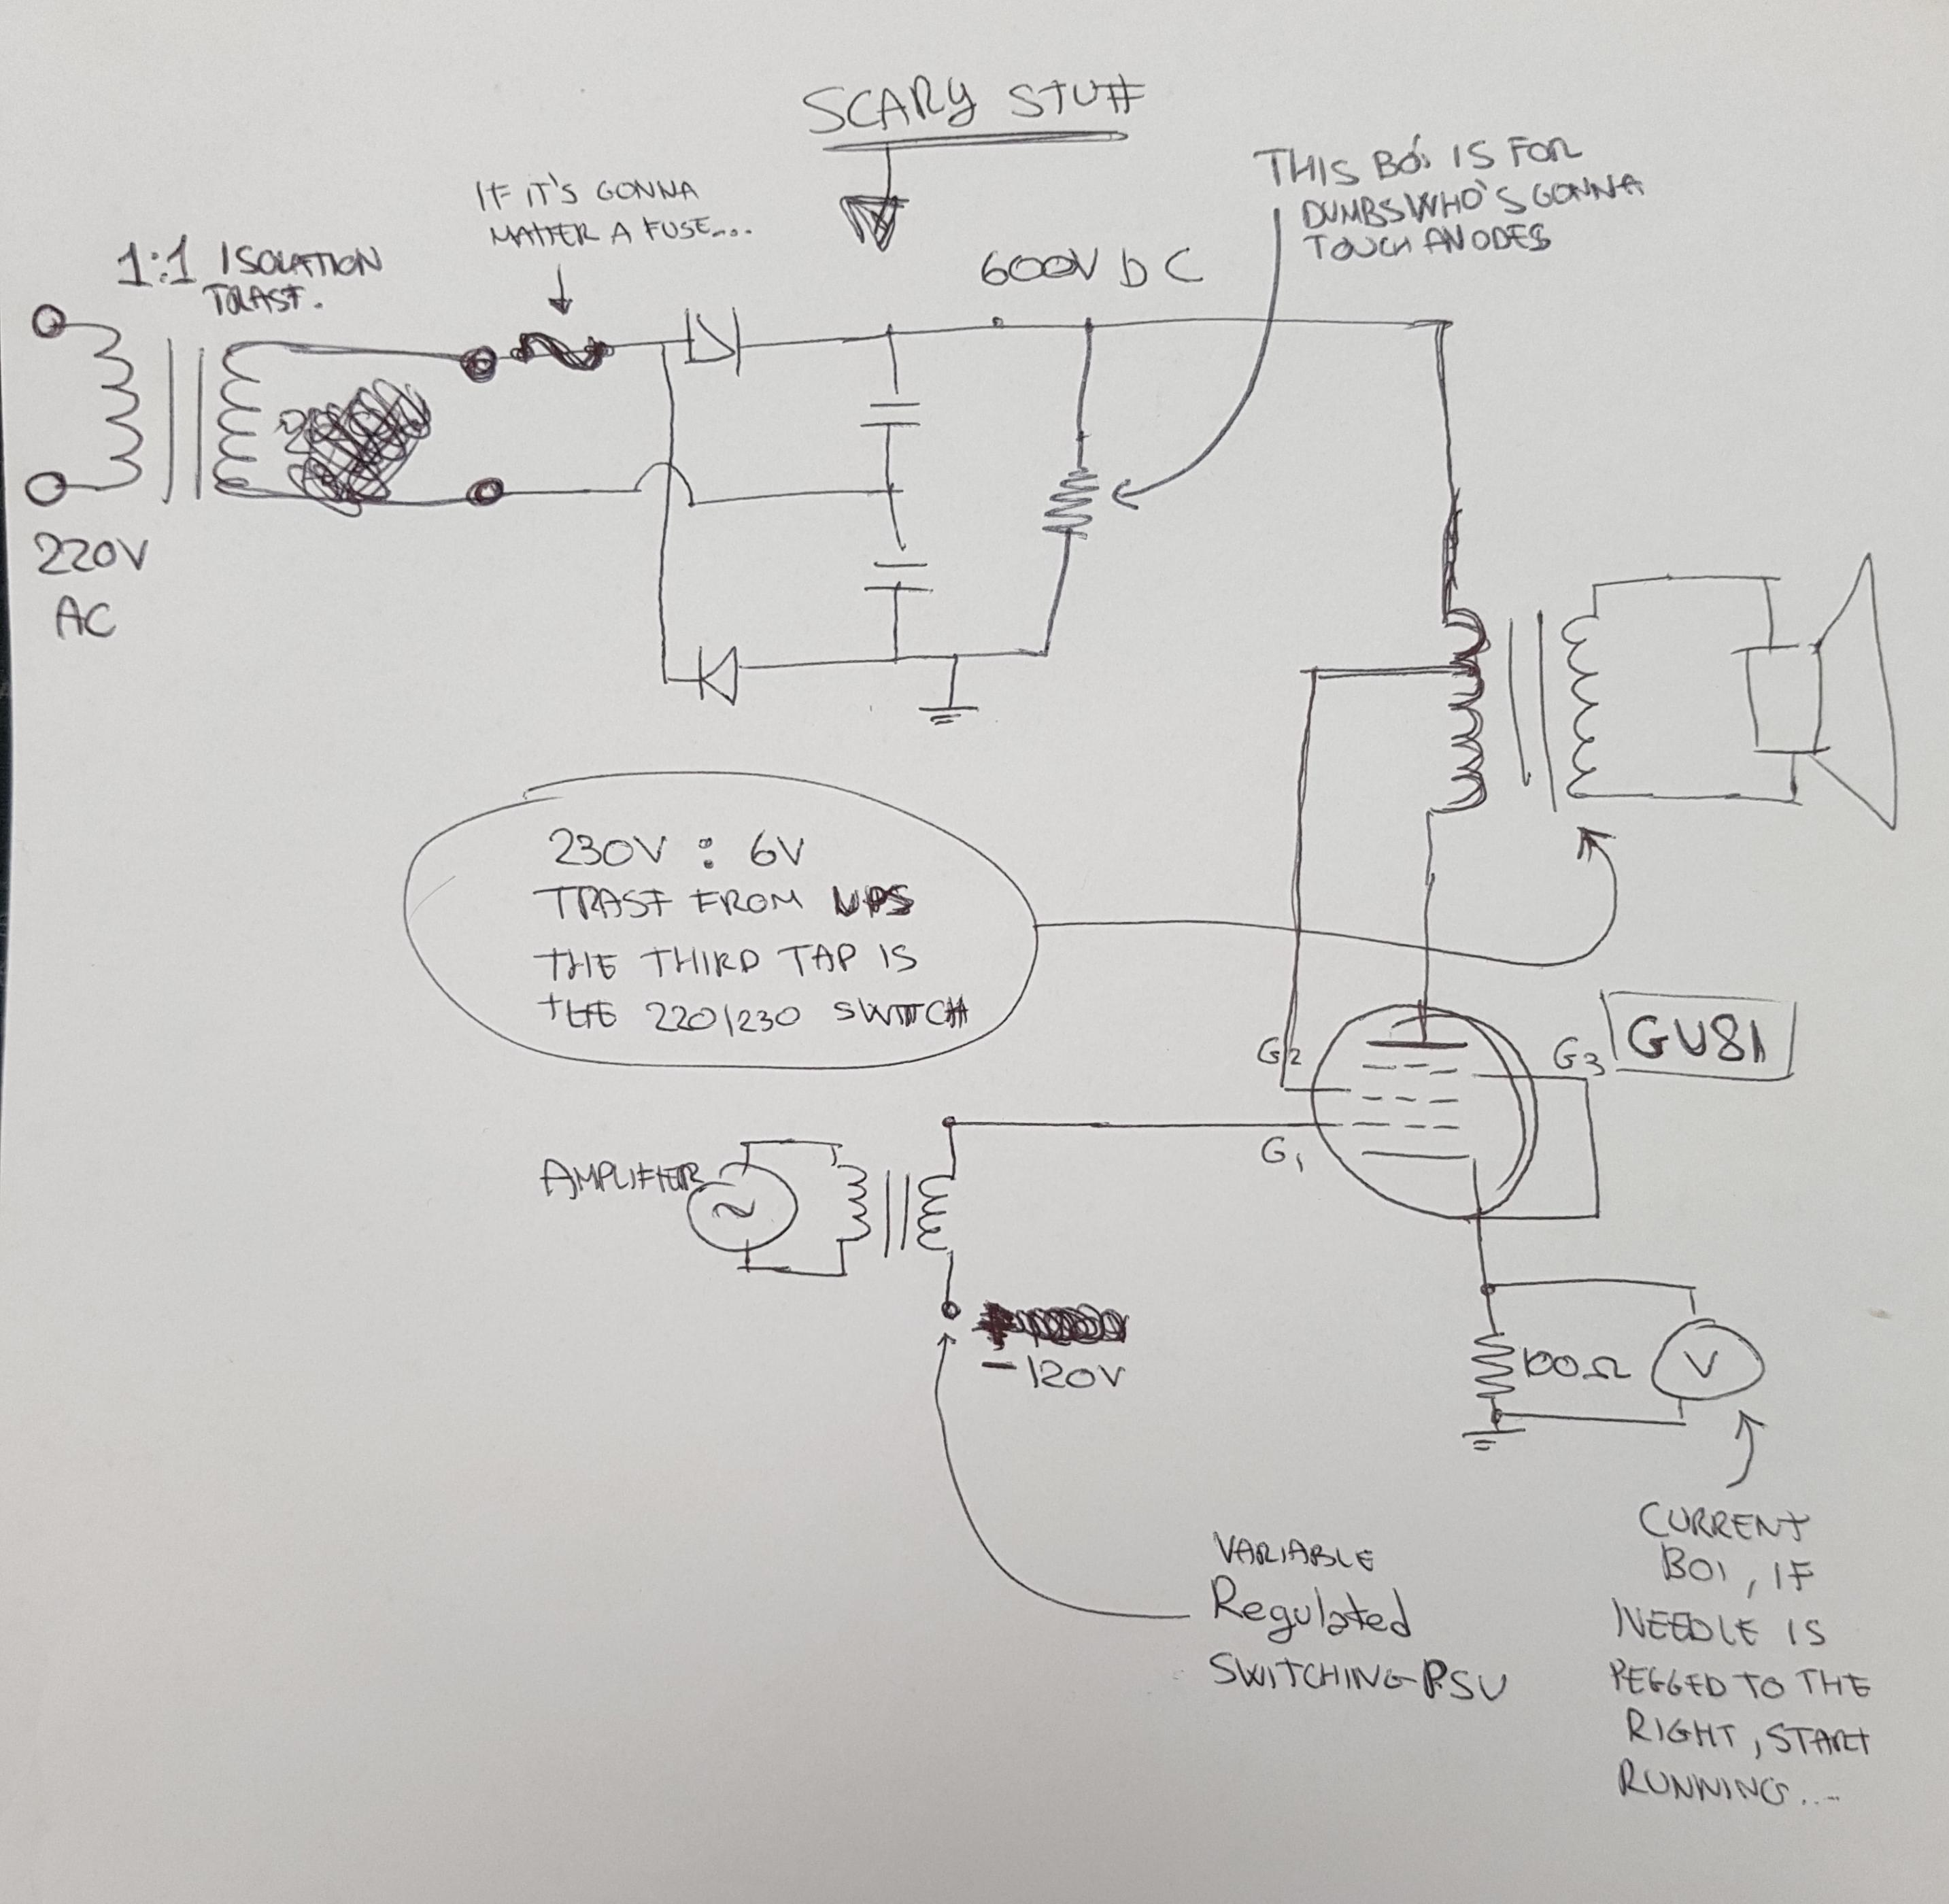 SCARY STUFF
IF IT'S GONNA
MATTER A FUSE....
THIS BOI IS FOR
DUMBS WHO'S GONNA
TOUCH ANODES
1:1 ISOLATION
TRASF.
600V DC
220V
AC
230V : 6V
TRASF FROM UPS
THE THIRD TAP IS
THE 220/230 SWITCH
G2
G3
GU81
G1
AMPLIFIER
~
-120V
100Ω
V
VARIABLE
Regulated
SWITCHING PSU
CURRENT
BOI, IF
NEEDLE IS
PEGGED TO THE
RIGHT, START
RUNNING....